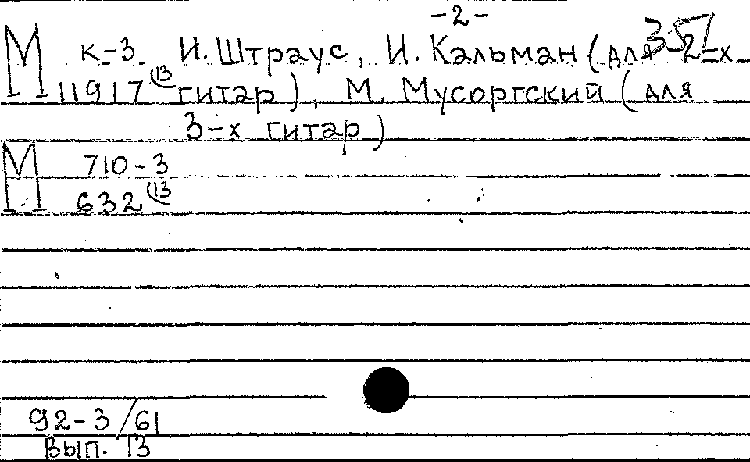 -2-
М к-3 И. Штраус, И. Кальман (для 2-х
11917(13 гитар), М. Мусоргский (для
3-х гитар)
М 710-3
632(13
92-3/61
Вып. 13